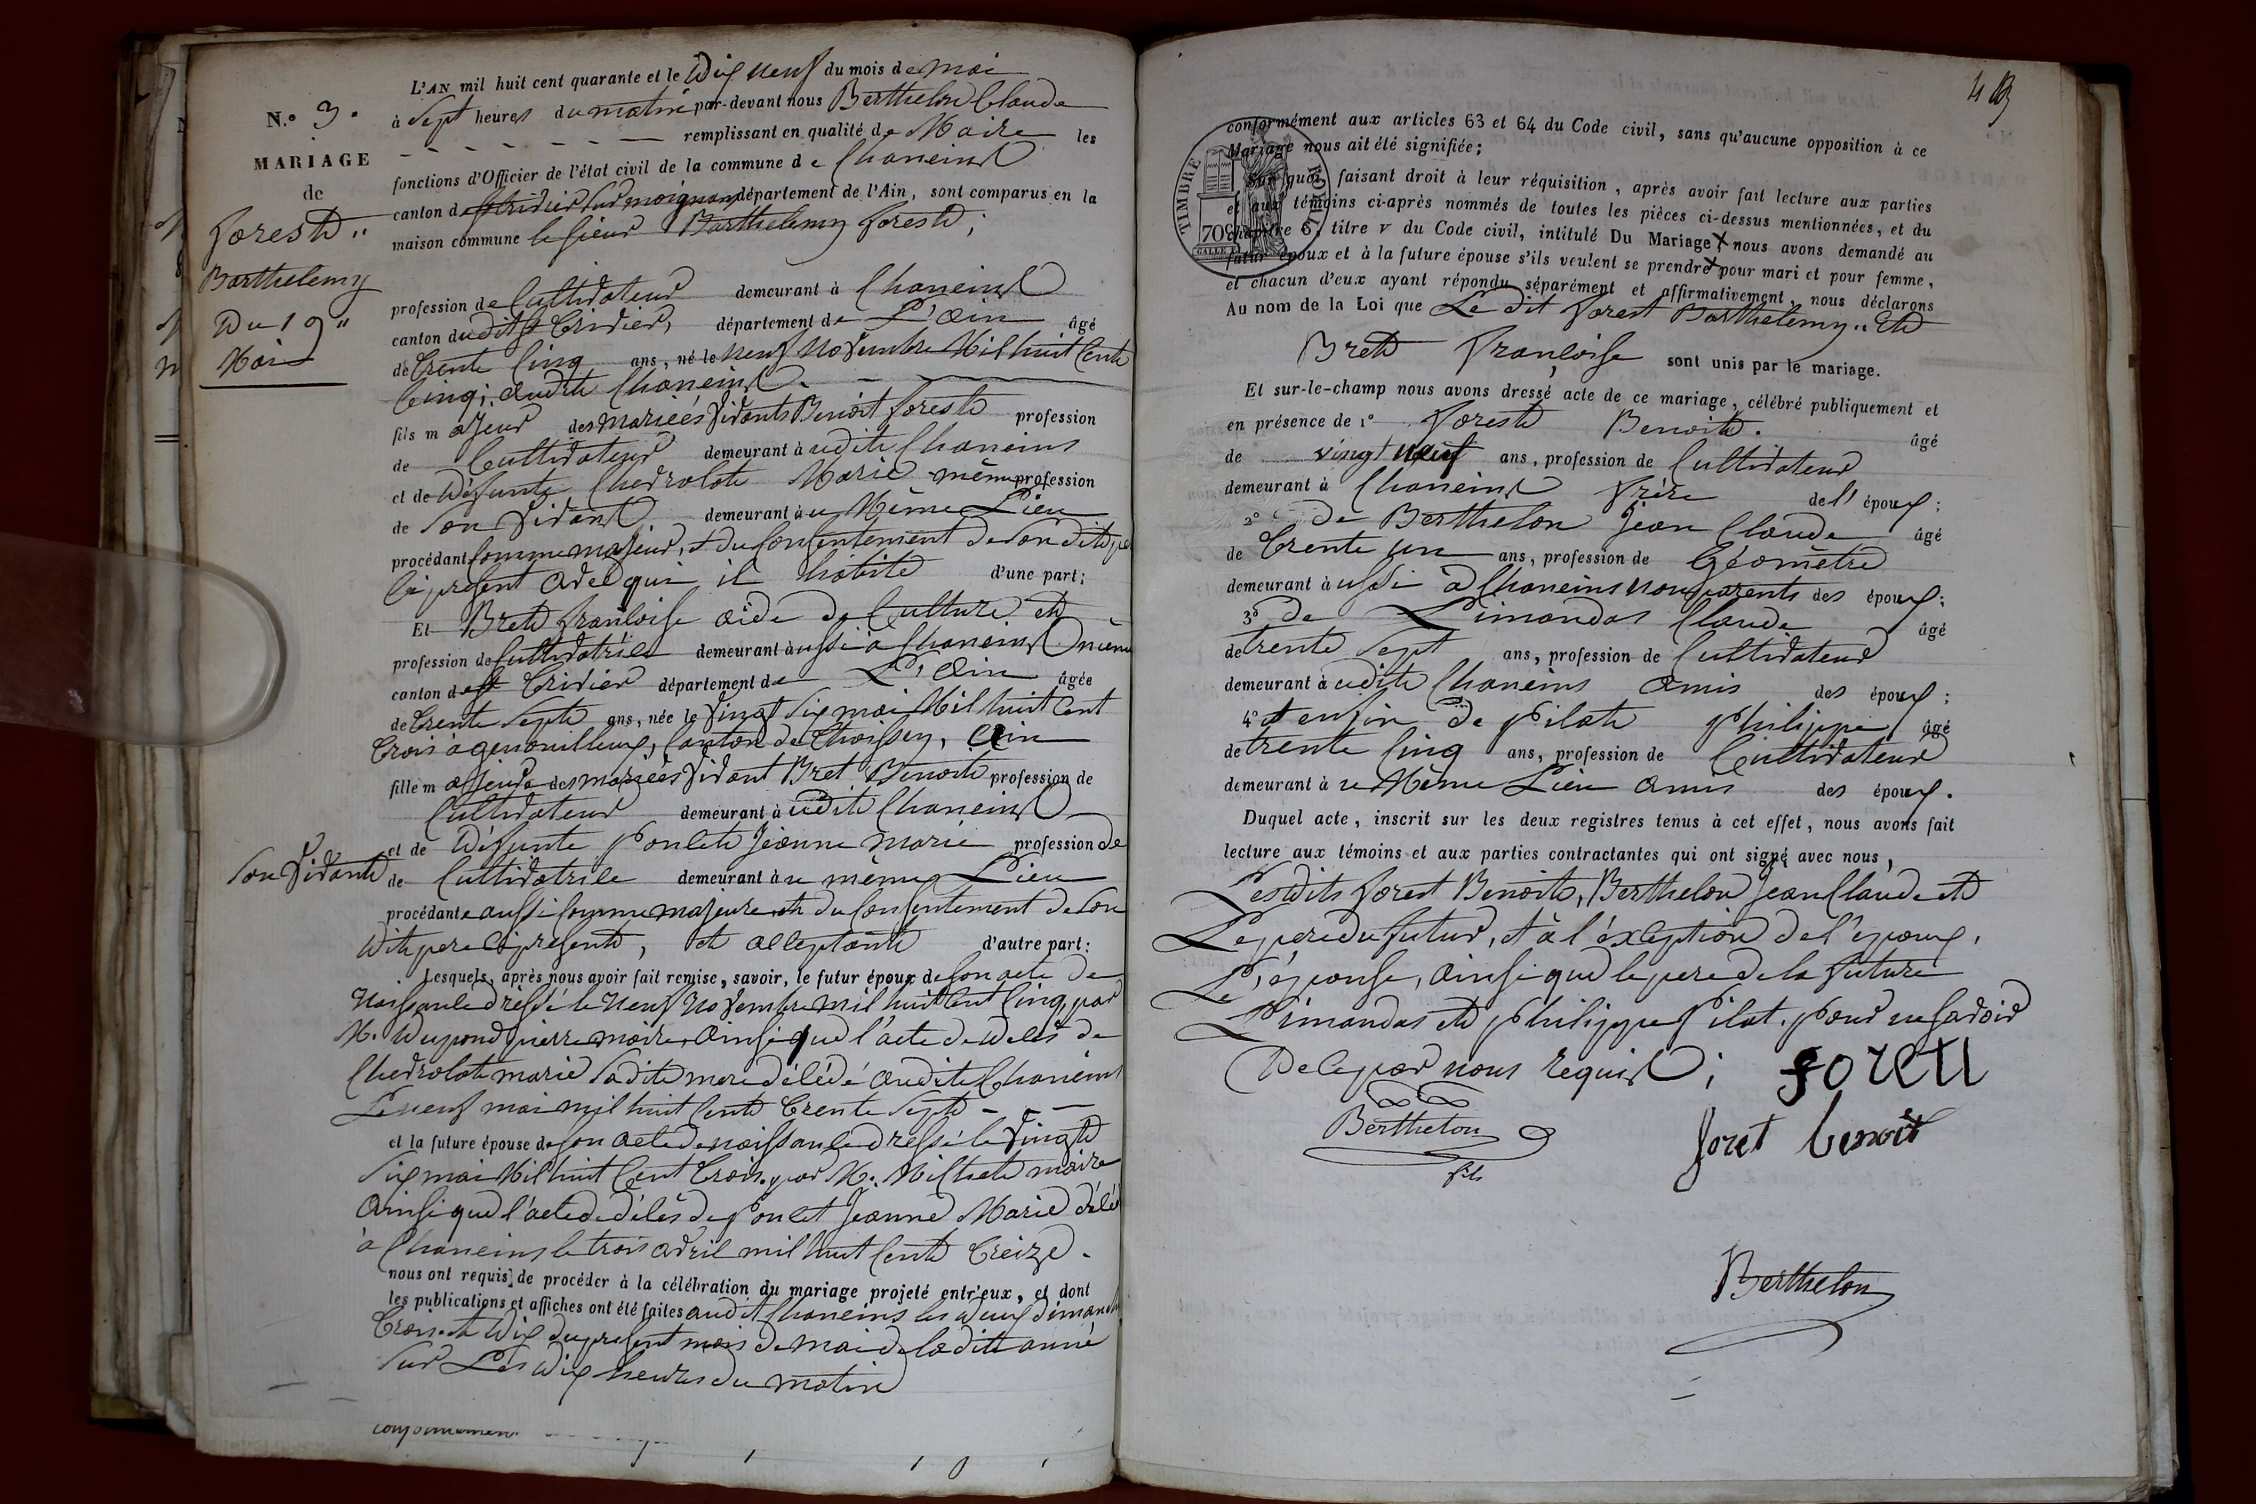 N.º 3.
MARIAGE
de
foreste
Barthelemy
Du 19
Mai
L'AN mil huit cent quarante et le Dix neuf du mois de mai
à Sept heures du matin par-devant nous Berthelon Claude
remplissant en qualité de Maire les
fonctions d'Officier de l'état civil de la commune de Chaneins
canton de département de l'Ain, sont comparus en la
maison commune le sieur Barthelemy foreste,
profession de Cultivateur demeurant à Chaneins
canton dudit St Trivier, département de L'ain âgé
de trente cinq ans, né le neuf Novembre Mil huit Cent
Cinq; audit Chaneins
fils majeur des mariés vivants Benoit foreste profession
de Cultivateur demeurant à udit Chaneins
et de Défunte Chevrolat Marie même profession
de Son Vivant demeurant à u Même Lieu
procédant Comme majeur, et du Consentement de Son dit père
ci présent avec qui il habite d'une part;
Et Bret françoise aide de Culture et
profession de Cultivatrice demeurant à ussi à Chaneins même
canton de St Trivier département de L'ain âgée
de trente Sept ans, née le vingt Six mai Mil huit Cent
trois à genouilleux, Canton de Thoissey, Ain
fille majeure des mariés vivant Bret Benoit profession de
Cultivateur demeurant à udit Chaneins
et de Défunte Poncet Jeanne Marie profession de
Son Vivant de Cultivatrice demeurant à u même Lieu
procédante aussi Comme majeure et du Consentement de Son
dit pere Ci présent, et acceptant d'autre part:
Lesquels, après nous avoir fait remise, savoir, le futur époux de Son acte de
Naissance dressé le Neuf Novembre mil huit Cent Cinq par
M. Dupond pierre maire, ainsi que l'acte de décès de
Chevrolat marie Sa dite mere décédé audit Chaneins
Le neuf mai mil huit Cent trente Sept
et la future épouse de Son acte de naissance dressé le vingt
Six mai Mil huit Cent trois par M. Michet maire
Ainsi que l'acte de décès de Poncet Jeanne Marie décé
à Chaneins le trois avril mil huit Cent treize.
nous ont requis de procéder à la célébration du mariage projeté entr'eux, et dont
les publications et affiches ont été faites audit Chaneins les deux dimanches
trois et dix du présent mois de mai de la dite année
Sur Les dix heures du matin
413
TIMBRE ROYAL
70c
conformément aux articles 63 et 64 du Code civil, sans qu'aucune opposition à ce
Mariage nous ait été signifiée;
Sur quoi, faisant droit à leur réquisition, après avoir fait lecture aux parties
et aux témoins ci-après nommés de toutes les pièces ci-dessus mentionnées, et du
chapitre 6, titre v du Code civil, intitulé Du Mariage, nous avons demandé au
futur époux et à la future épouse s'ils veulent se prendre pour mari et pour femme,
et chacun d'eux ayant répondu séparément et affirmativement, nous déclarons
Au nom de la Loi que Le dit forest Barthelemy Et
Bret françoise sont unis par le mariage.
Et sur-le-champ nous avons dressé acte de ce mariage, célébré publiquement et
en présence de 1º foreste Benoit. âgé
de vingt neuf ans, profession de Cultivateur
demeurant à Chaneins frère de l'époux;
2º de Berthelon Jean Claude âgé
de trente un ans, profession de Géomètre
demeurant à ussi à Chaneins non parents des époux;
3º de Limandas Claude âgé
de trente Sept ans, profession de Cultivateur
demeurant à udit Chaneins amis des époux;
4º et enfin de Pilat Philippe âgé
de trente Cinq ans, profession de Cultivateur
demeurant à u Même Lieu amis des époux.
Duquel acte, inscrit sur les deux registres tenus à cet effet, nous avons fait
lecture aux témoins et aux parties contractantes qui ont signé avec nous,
Lesdits forest Benoit, Berthelon Jean Claude et
Le pere du futur, et à l'éxception de l'époux,
L'épouse, ainsi que le pere de la future
Limandas et Philippe Pilat. pour ne Savoir
De ce par nous requis;
foret
Berthelon
fils
foret benoit
Berthelon